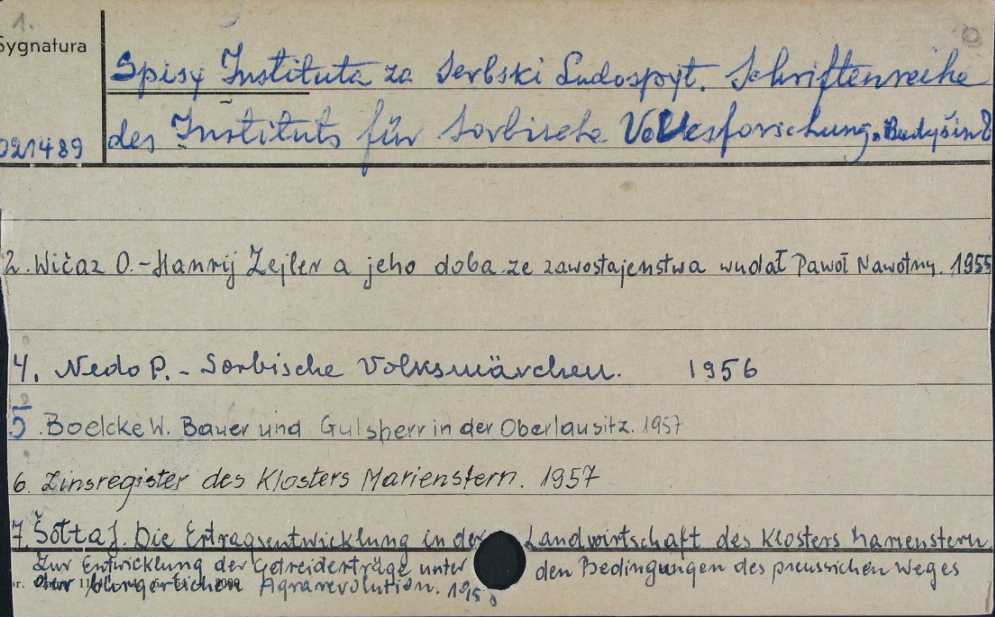 1.
Sygnatura
Spisy Instituta za serbski Ludospyt. Schriftenreihe
021489 des Instituts für sorbische Volksforschung. Budyšin
2. Wićaz O. - Handrij Zejler a jeho doba ze zawostajenstwa wudał Pawoł Nawotny. 1955
4. Nedo P. - Sorbische Volksmärchen. 1956
5. Boelcke W. Bauer und Gutsherr in der Oberlausitz. 1957
6. Zinsregister des Klosters Marienstern. 1957
7. Šołta J. Die Ertragsentwicklung in der Landwirtschaft des Klosters Marienstern
Zur Entwicklung der Getreideerträge unter den Bedingungen des preussichen Weges
der bürgerlichen Agrarrevolution.